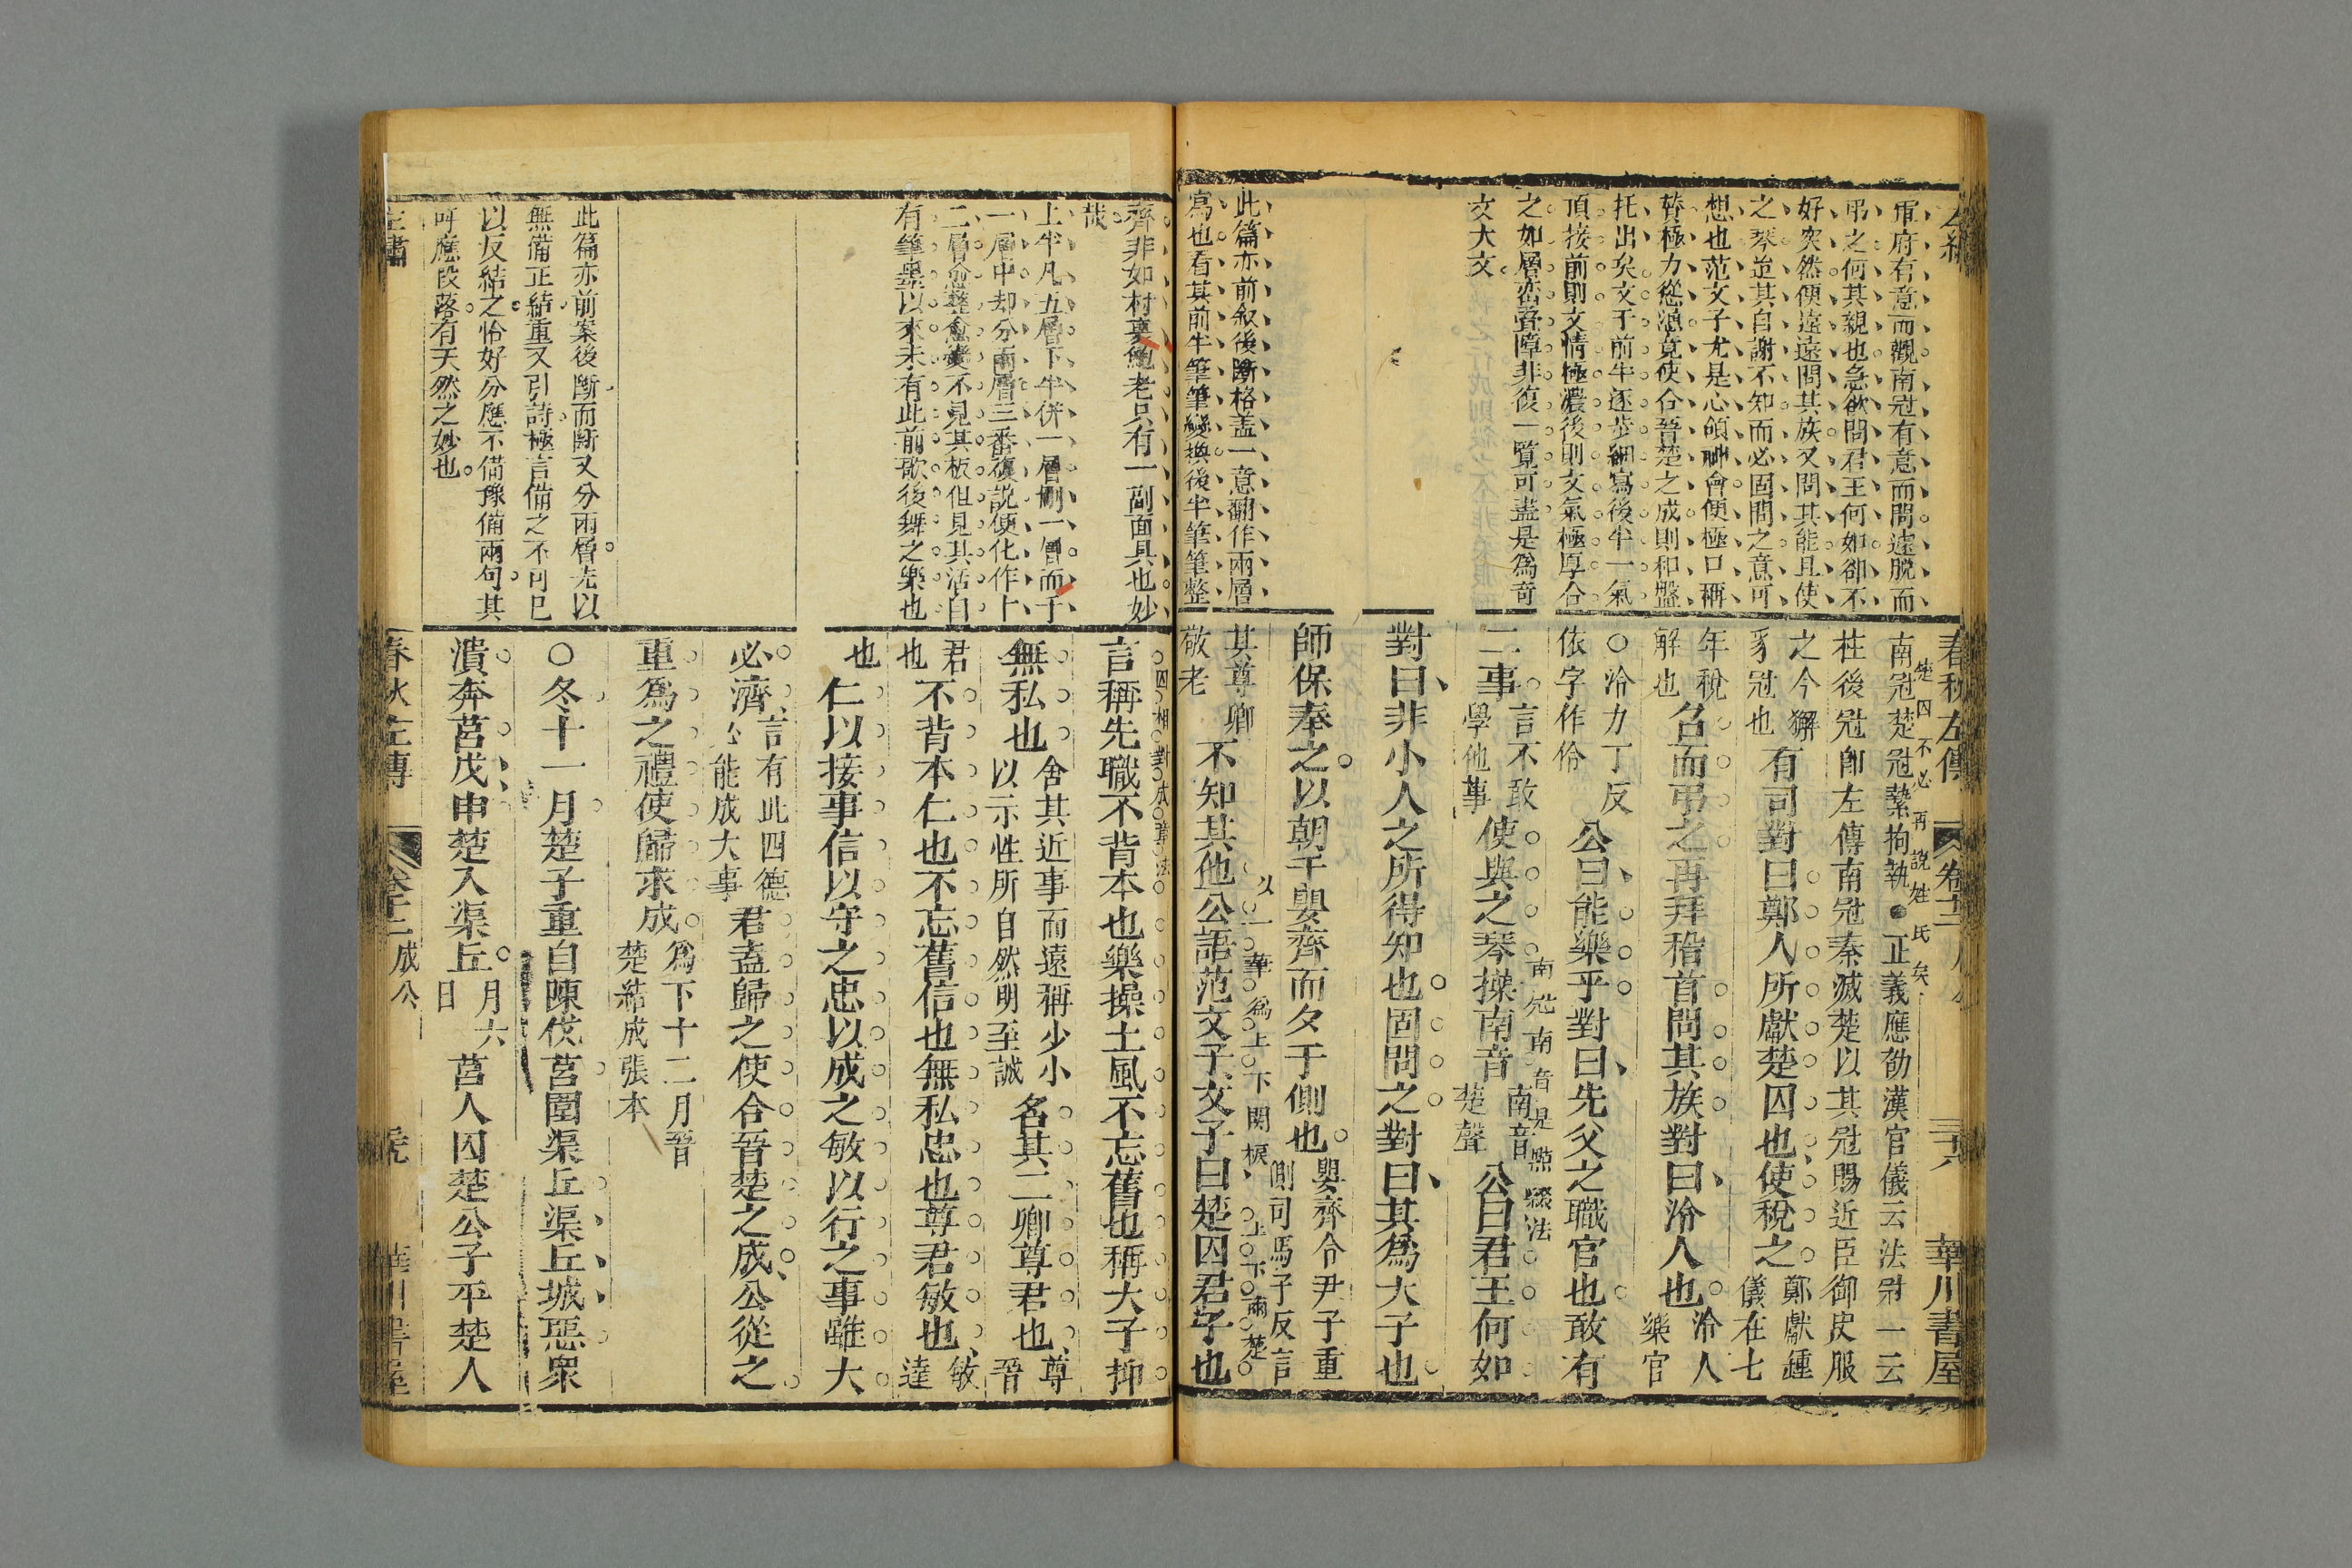 軍府有意而觀南冠有意而問遠脫而
弔之何其親也急欲問君王何如卻不
好突然便遠遠問其族又問其能且使
之琴迨其自謝不知而必固問之意可
想也范文子尤是心領神會便極口稱
贊極力慫恿竟使合晉楚之成則和盤
托出矣文于前半逐步細寫後半一氣
頂接前則文情極濃後則文氣極厚合
之如層巒疊障非復一覽可盡是爲奇
文大文
此篇亦前叙後斷格盖一意翻作兩層
寫也看其前半筆筆變換後半筆筆整
春秋左傳 卷十二 華川書屋
楚囚不必再說姓氏矣
南冠楚冠縶拘執●正義應劭漢官儀云法冠一云
柱後冠卽左傳南冠秦滅楚以其冠賜近臣御史服
之今獬
豸冠也
有司對曰鄭人所獻楚囚也使稅之
鄭獻鍾
儀在七
年稅
解也
召而弔之再拜稽首問其族對曰泠人也
泠人
樂官
○泠力丁反
依字作伶
公曰能樂乎對曰先父之職官也敢有
二事
言不敢
學他事
使與之琴操南音
南音
楚聲
公曰君王何如
南冠南音是照綴法
對曰非小人之所得知也固問之對曰其爲大子也
師保奉之以朝于嬰齊而夕于側也
嬰齊令尹子重
側司馬子反言
其尊卿
敬老
不知其他公語范文子文子曰楚囚君子也
以一華爲上下関棙
上下兩楚
齊非如村裏鮑老只有一副面具也妙
哉
上半凡五層下半併一層刪一層而于
一層中却分兩層三番復說便化作十
二層愈整愈變不見其板但見其活自
有筆墨以來未有此前歌後舞之樂也
此篇亦前案後斷而斷又分兩層先以
無備正結重又引詩極言備之不可已
以反結之恰好分應不備豫備兩句其
呼應段落有天然之妙也
言稱先職不背本也樂操土風不忘舊也稱大子抑
無私也
舍其近事而遠稱少小
以示性所自然明至誠
名其二卿尊君也
尊
晉
君
也
不背本仁也不忘舊信也無私忠也尊君敏也
敏
達
也
仁以接事信以守之忠以成之敏以行之事雖大
必濟
言有此四德
必能成大事
君盍歸之使合晉楚之成公從之
重爲之禮使歸求成
爲下十二月晉
楚結成張本
○冬十一月楚子重自陳伐莒圍渠丘渠丘城惡衆
潰奔莒戊申楚入渠丘
月六
日
莒人囚楚公子平楚人
左繡
春秋左傳 卷十二 成公 華川書屋